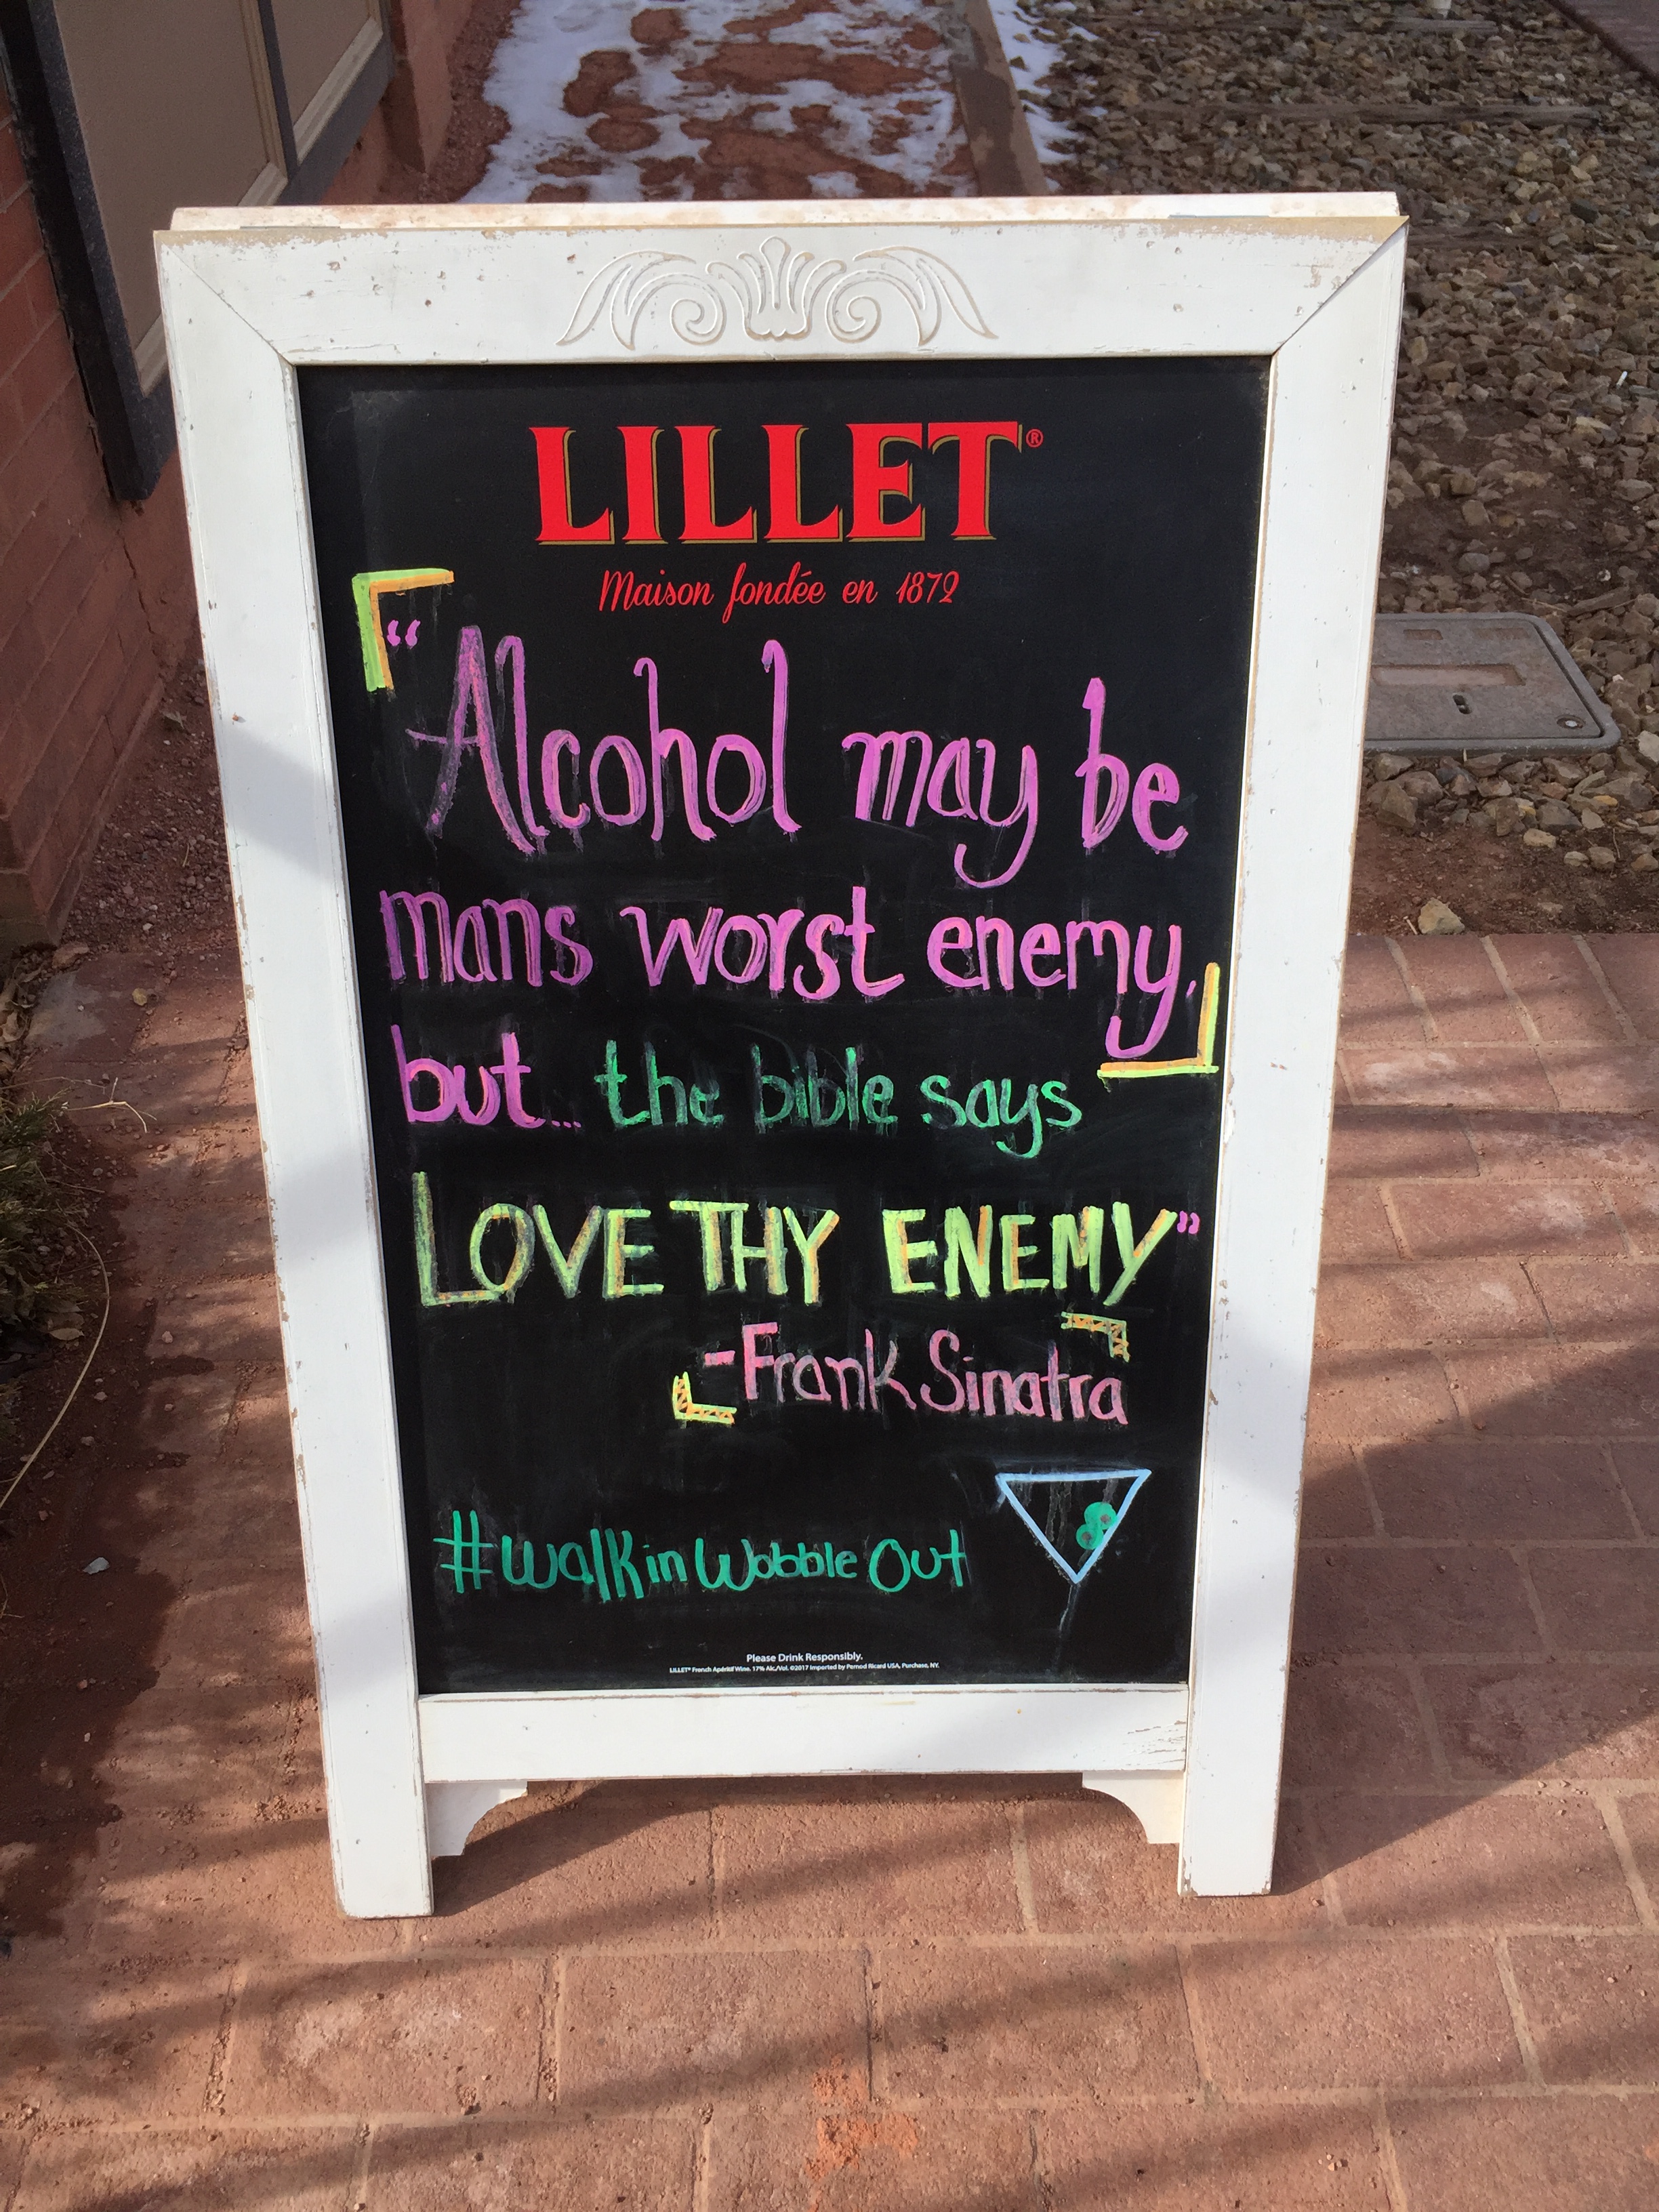 LILLET®
Maison fondée en 1872
"Alcohol may be
mans worst enemy,
but... the bible says
LOVE THY ENEMY"
-Frank Sinatra
#walkinWobbleOut
Please Drink Responsibly.
LILLET® French Apéritif Wine. 17% Alc./Vol. ©2017 Imported by Pernod Ricard USA, Purchase, NY.